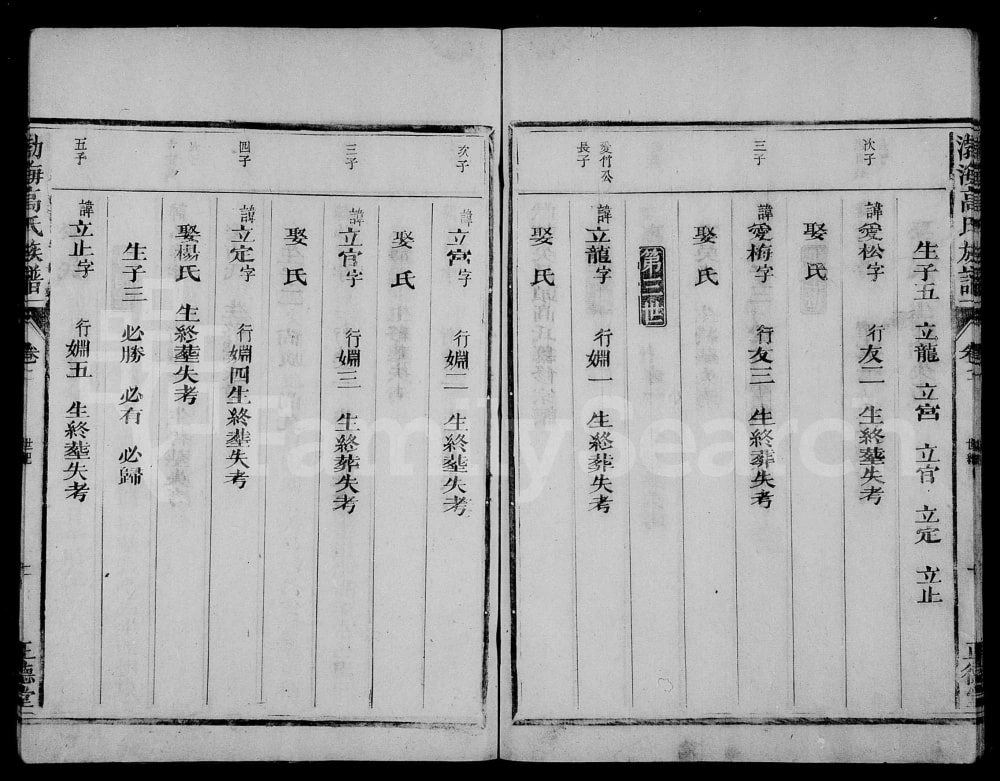 渤海高氏族譜
卷
世
正德堂
生子五 立龍 立宮 立官 立定 立止
次子
諱愛松字 行友二 生終塟失考
娶 氏
三子
諱愛梅字 行友三 生終葬失考
娶 氏
第三世
愛竹公
長子
諱立龍字 行嫺一 生終葬失考
娶 氏
次子
諱立宮字 行嫺二 生終塟失考
娶 氏
三子
諱立官字 行嫺三 生終葬失考
娶 氏
四子
諱立定字 行嫺四 生終塟失考
娶楊氏 生終塟失考
生子三 必勝 必有 必歸
五子
諱立止字 行嫺五 生終塟失考
渤海高氏族譜
卷
世
正德堂
FamilySearch